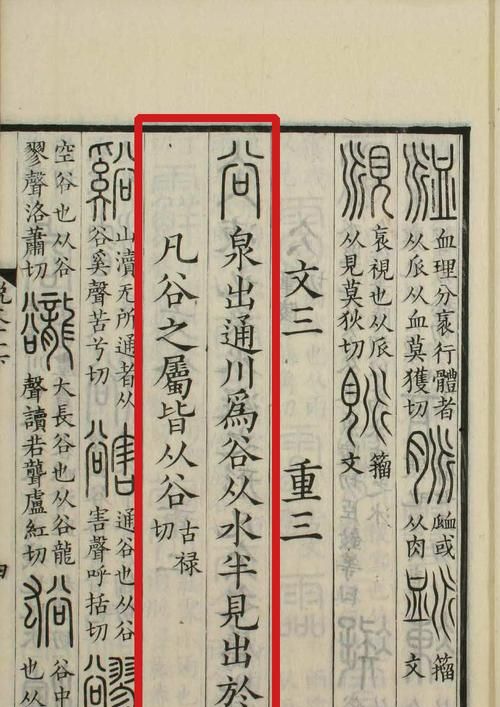 衇血理分衺行體者从𠂢从血莫獲切脈衇或从肉𧖴籒文
覛衺視也从𠂢从見莫狄切𧠯籒文
文三 重三
谷泉出通川爲谷从水半見出於
凡谷之屬皆从谷古祿切
谿山瀆无所通者从谷奚聲苦兮切豁通谷也从谷害聲呼括切豂
空谷也从谷翏聲洛蕭切豅大長谷也从谷龍聲讀若聾盧紅切谹谷中也从